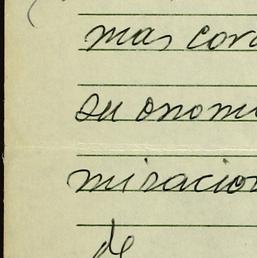 mas cor
su onom
miracion
de